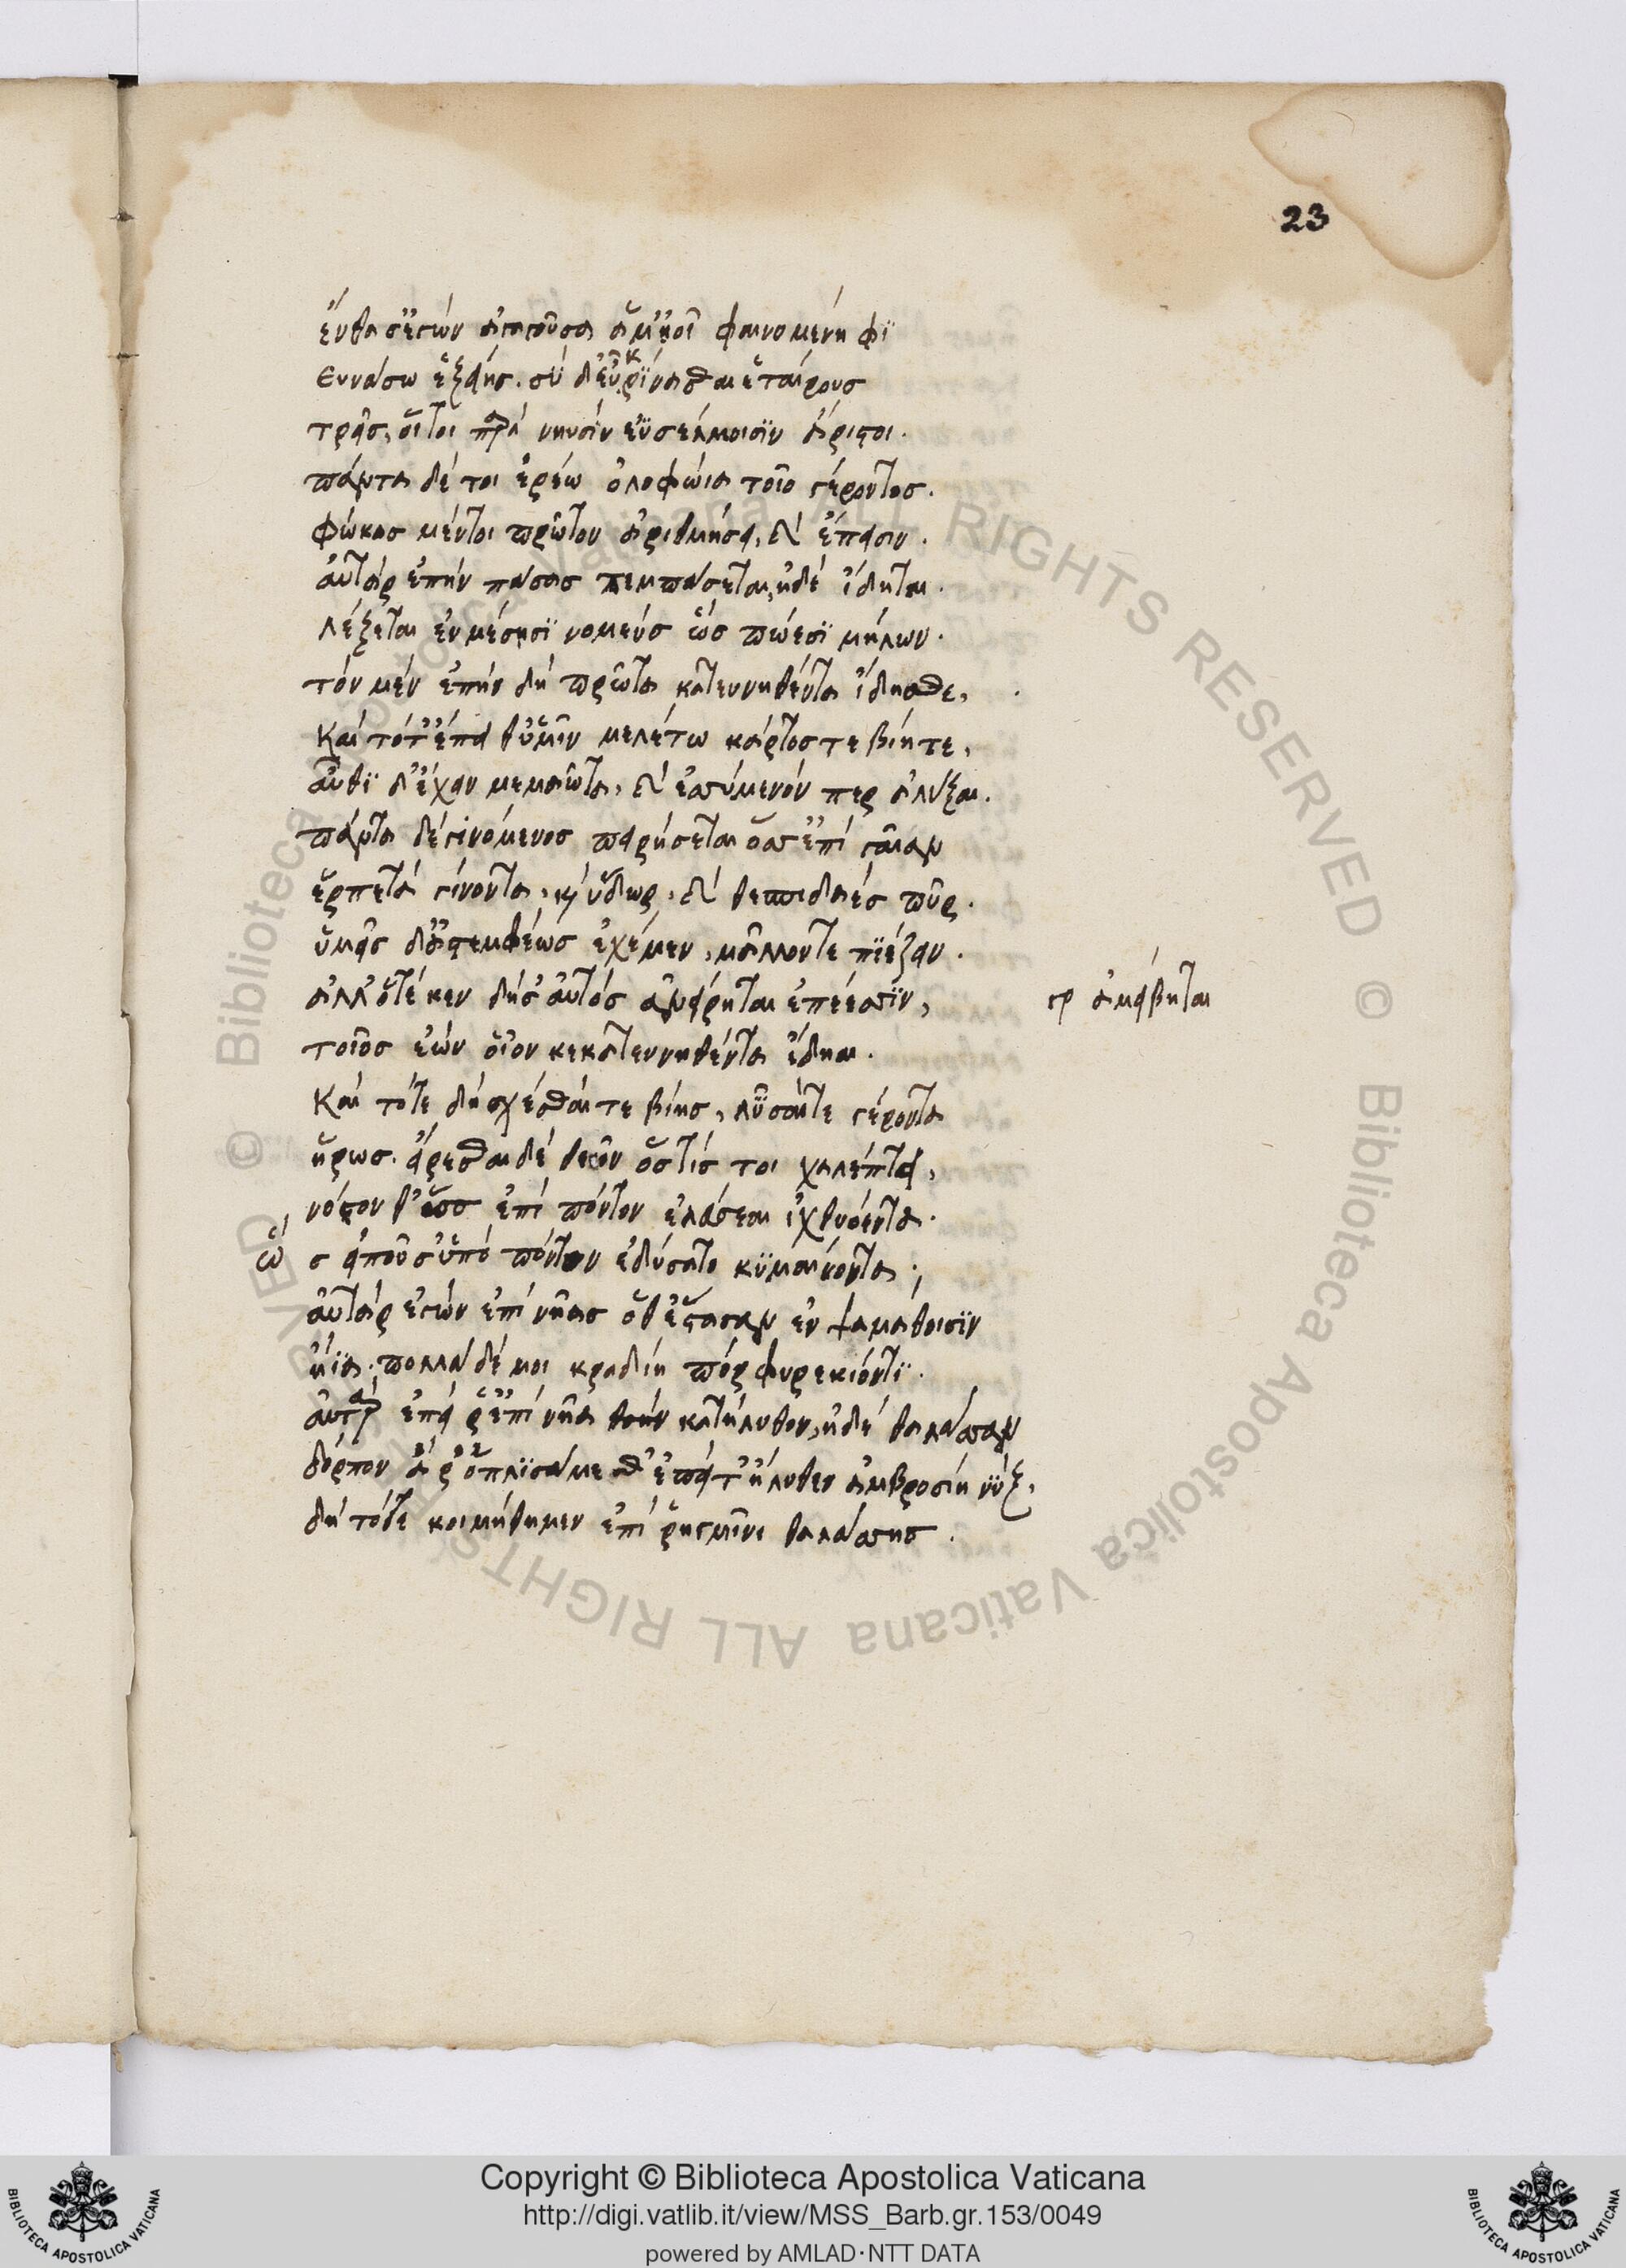 23
ἔνθα σ' ἐγὼν ἀγαγοῦσα ἅμ' ἠοῖ φαινομένηφϊ
εὐνάσω ἑξείης. σὺ δ' εὖ κρΐνασθαι ἑταίρους
τρεῖς, οἵ τοι παρὰ νηυσὶν ἐϋσέλμοισϊν ἄριστοι.
πάντα δέ τοι ἐρέω ὀλοφώια τοῖο γέροντος.
φώκας μέν τοι πρῶτον ἀριθμήσει, καὶ ἔπεισιν.
αὐτὰρ ἐπὴν πάσας πεμπάσεται, ἠδὲ ἴδηται.
λέξεται ἐν μέσησϊ νομεὺς ὣς πώεσϊ μήλων.
τὸν μὲν ἐπὴν δὴ πρῶτα κατευνηθέντα ἴδησθε,
Καὶ τότ' ἔπειθ' ὑμῖν μελέτω κάρτος τε βίη τε,
αὖθϊ δ' ἔχειν μεμαῶτα, καὶ ἐσσύμενόν περ ἀλύξαι.
πάντα δὲ γινόμενος πειρήσεται ὅσσ' ἐπὶ γαῖαν
ἑρπετὰ γίνονται, καὶ ὕδωρ, καὶ θεσπιδαὲς πῦρ.
ὑμεῖς δ' ἀστεμφέως ἐχέμεν, μᾶλλόν τε πϊέζειν.
ἀλλ' ὅτέ κεν δή σ' αὐτὸς ἀνείρηται ἐπέεσσϊν,
γρ ἀμείβηται
τοῖος ἐὼν οἷόν κε κατευνηθέντα ἴδηαι.
Καὶ τότε δὴ σχέσθαί τε βίης, λῦσαί τε γέροντα
ἥρως. εἴρεσθαι δὲ θεῶν ὅστίς τοι χαλέπτει,
νόστον θ' ὡς ἐπὶ πόντον ἐλεύσεαι ἰχθυόεντα.
ὣς εἰποῦσ' ὑπὸ πόντον ἐδύσατο κϋμαίνοντα;
αὐτὰρ ἐγὼν ἐπὶ νῆας ὅθ' ἕστασαν ἐν ψαμάθοισϊν
ἤϊα. πολλὰ δέ μοι κραδίη πόρφυρε κιόντϊ.
αὐτὰρ ἐπεί ῥ' ἐπὶ νῆα θοὴν κατήλυθον, ἠδὲ θάλασσαν
δόρπον ἄρ' ὁπλϊσάμεσθ' ἐπεί τ' ἤλυθεν ἀμβροσίη νὺξ.
δὴ τότε κοιμήθημεν ἐπὶ ῥηγμῖνι θαλάσσης.
Copyright © Biblioteca Apostolica Vaticana
http://digi.vatlib.it/view/MSS_Barb.gr.153/0049
powered by AMLAD·NTT DATA